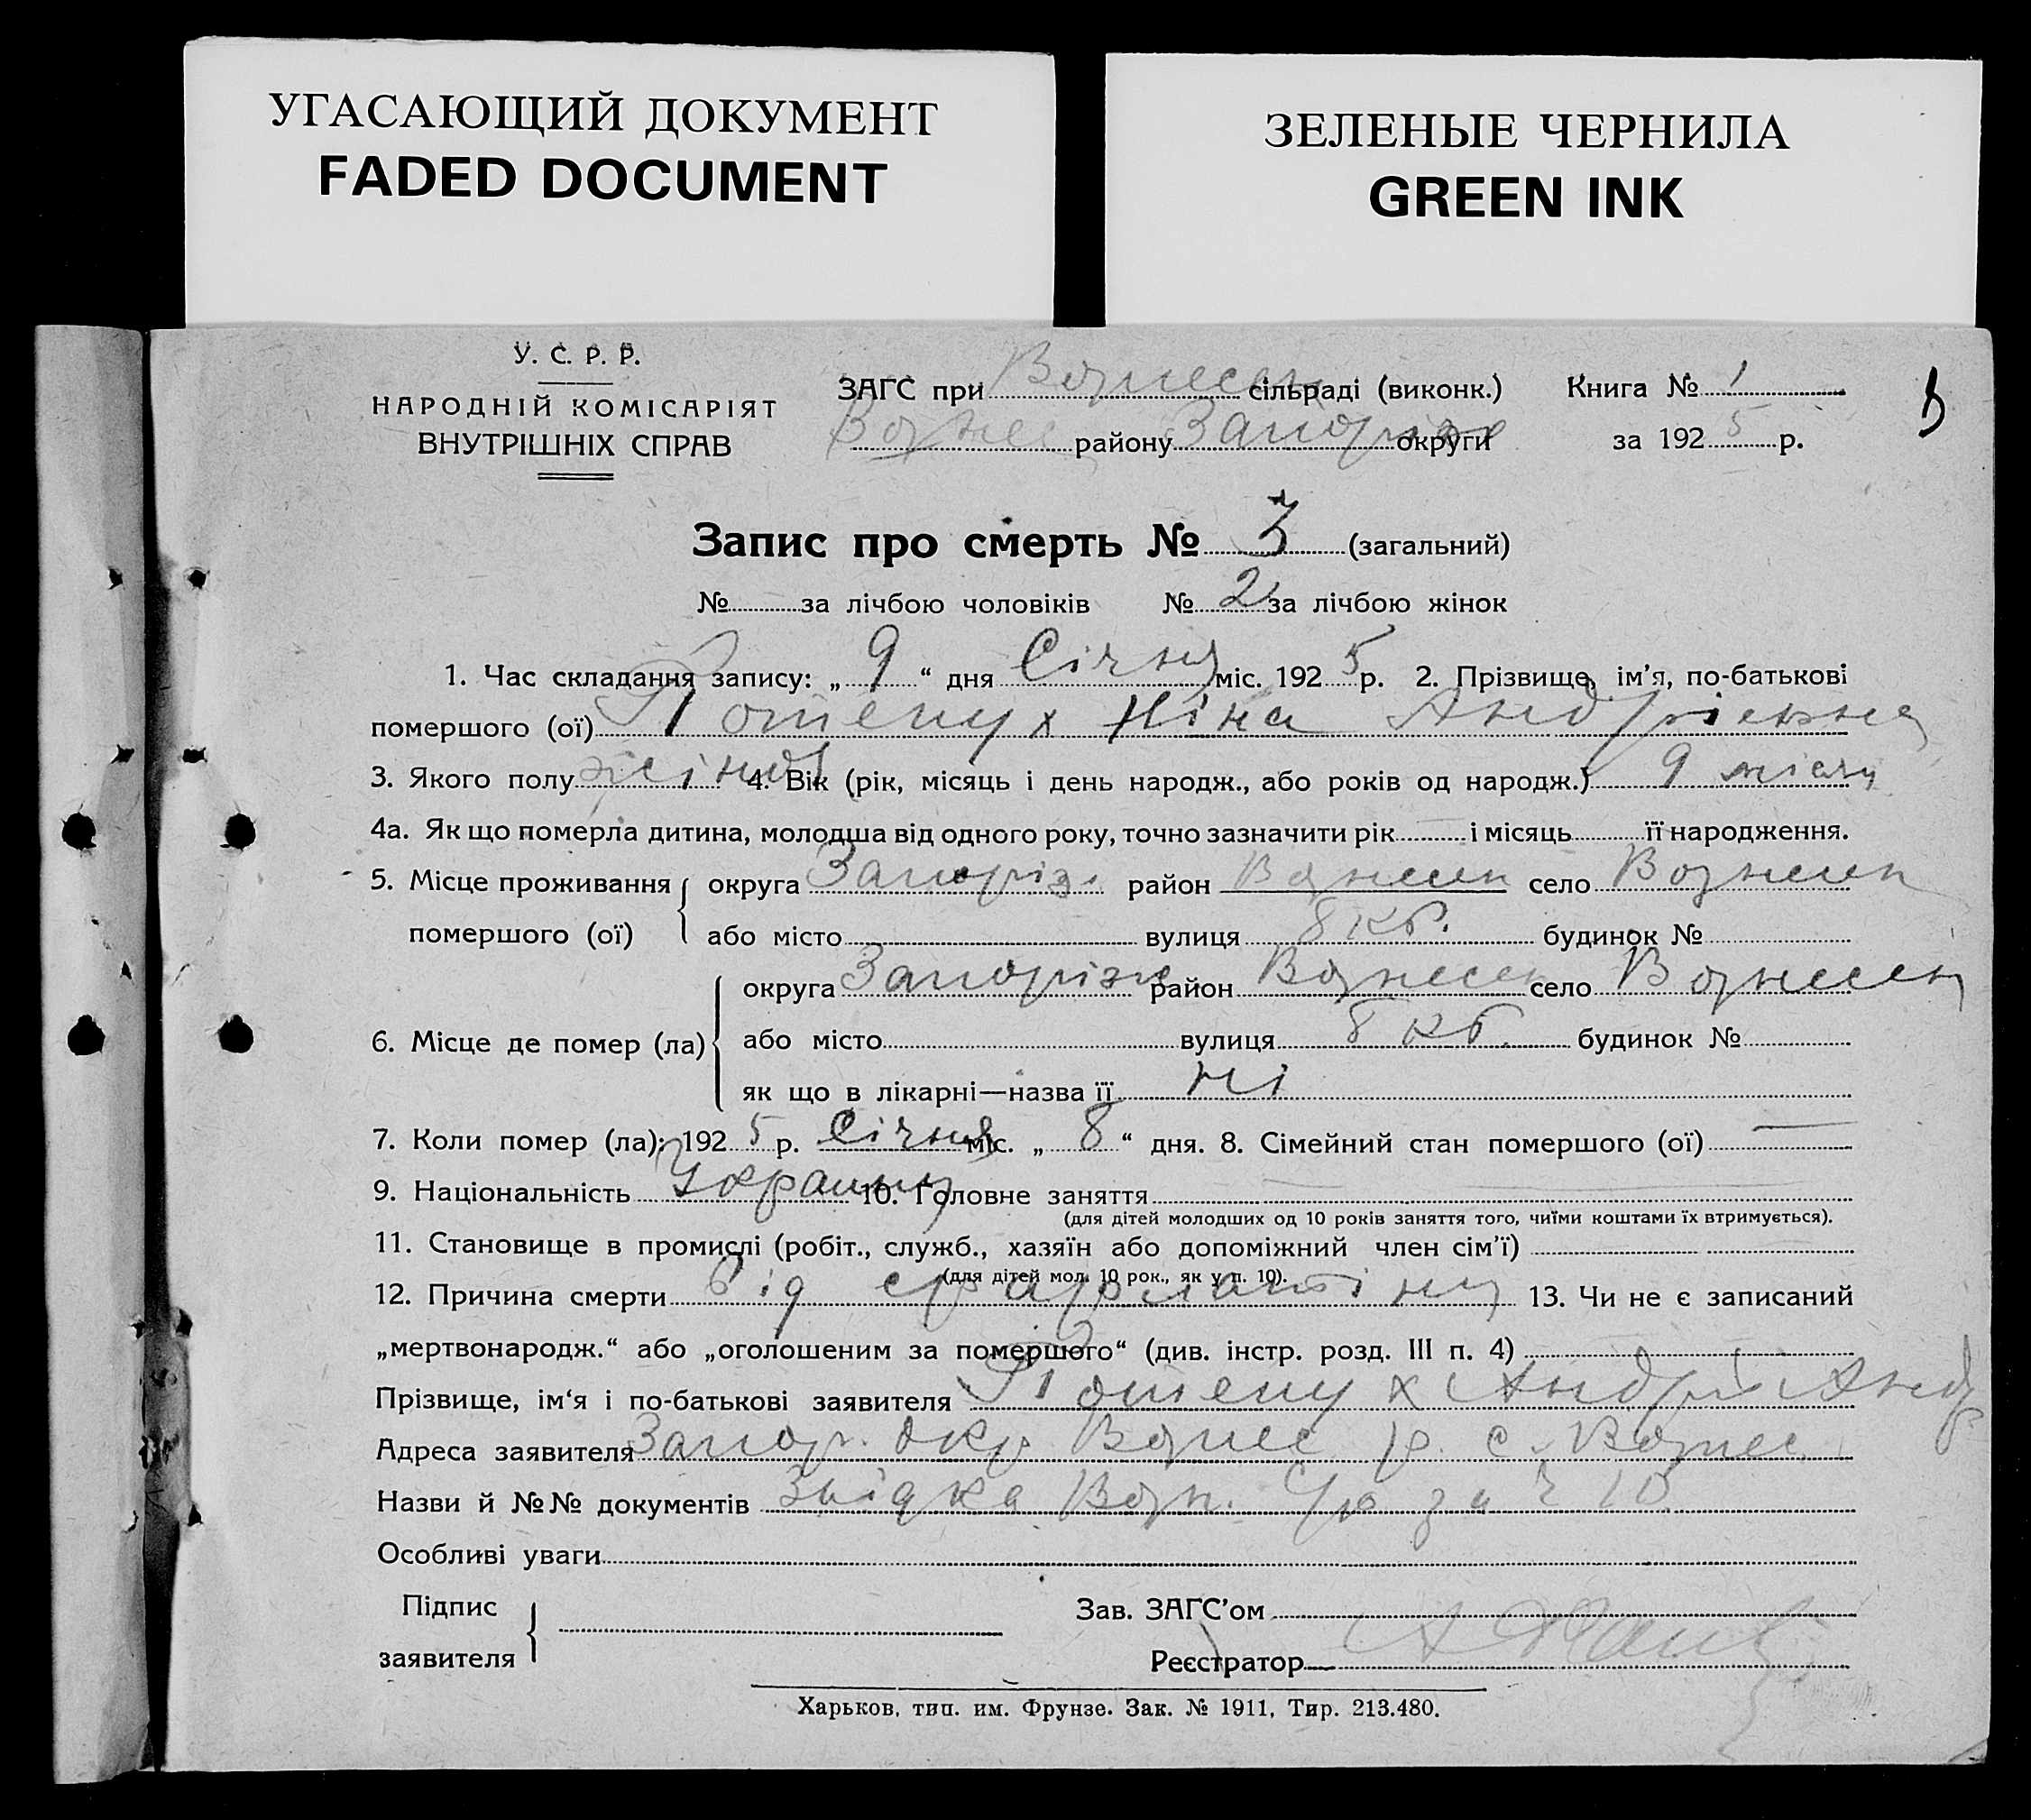 УГАСАЮЩИЙ ДОКУМЕНТ
FADED DOCUMENT
ЗЕЛЕНЫЕ ЧЕРНИЛА
GREEN INK
У. С. Р. Р.
НАРОДНІЙ КОМІСАРІЯТ
ВНУТРІШНІХ СПРАВ
ЗАГС при Вознесен сільраді (виконк.) Книга № 1
Вознес району Запоріж округи за 1925 р.
Запис про смерть № 3 (загальний)
№ за лічбою чоловіків № 2 за лічбою жінок
1. Час складання запису: „ 9 “ дня Січня міс. 1925 р. 2. Прізвище, ім’я, по-батькові
помершого (ої) Потепух Ніна Андріевна
3. Якого полу жіноч 4. Вік (рік, місяць і день народж., або років од народж.) 9 місяц
4а. Як що померла дитина, молодша від одного року, точно зазначити рік і місяць її народження.
5. Місце проживання округа Запоріж район Вознесен село Вознесен
помершого (ої) або місто вулиця 8 кв. будинок №
округа Запоріж район Вознесен село Вознесен
6. Місце де помер (ла) або місто вулиця 8 кв. будинок №
як що в лікарні—назва її ні
7. Коли помер (ла): 1925 р. Січня міс. „ 8 “ дня. 8. Сімейний стан помершого (ої) —
9. Національність Украинц 10. Головне заняття
(для дітей молодших од 10 років заняття того, чиїми коштами їх втримується).
11. Становище в промислі (робіт., служб., хазяїн або допоміжний член сім’ї)
(для дітей мол. 10 рок., як у п. 10).
12. Причина смерти Від скарлатіни 13. Чи не є записаний
„мертвонародж.“ або „оголошеним за помершого“ (див. інстр. розд. III п. 4)
Прізвище, ім‘я і по-батькові заявителя Потепух Андрій Андр
Адреса заявителя Запор. окр. Вознес р. с. Вознес
Назви й №№ документів Звідка Возн. за ч 10
Особливі уваги
Підпис
заявителя
Зав. ЗАГС’ом
Реєстратор
Харьков, тип. им. Фрунзе. Зак. № 1911, Тир. 213.480.